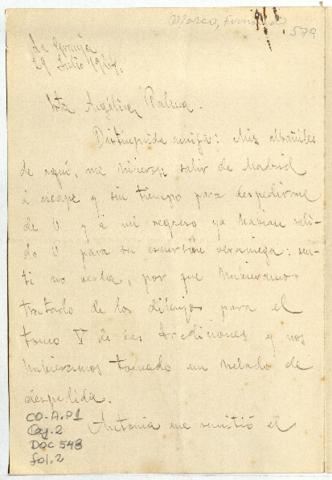 579
La Granja
29 Julio 1924.
Srta Angelina Palma.
Distinguida amiga: Mis albañiles
de aquí, me hicieron salir de Madrid
á escape y sin tiempo para despedirme
de V. y á mi regreso ya habian sali-
do V para su excursión veraniega: sen-
ti no verla, por que hubieramos
tratado de los dibujos para el
tomo V de las tradiciones y nos
hubieramos tomado un helado de
despedida.
Antonia me remitió el
CO-A.P1
Caj. 2
DOC 548
fol. 2